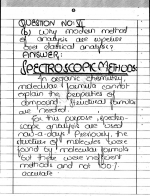 QUESTION NO: VI
(b) Why modern method
of analysis are superior
than classical analysis?
ANSWER:
SPECTROSCOPIC METHODS:
In organic chemistry,
molecular formula cannot
explain the properties of
compound. Structural formula
are needed.
For this purpose spectro-
scopic analysis are used
now-a-days. Previously, the
structure of molecules were
found by molecular formula
but these were inefficient
methods and not 100%
accurate